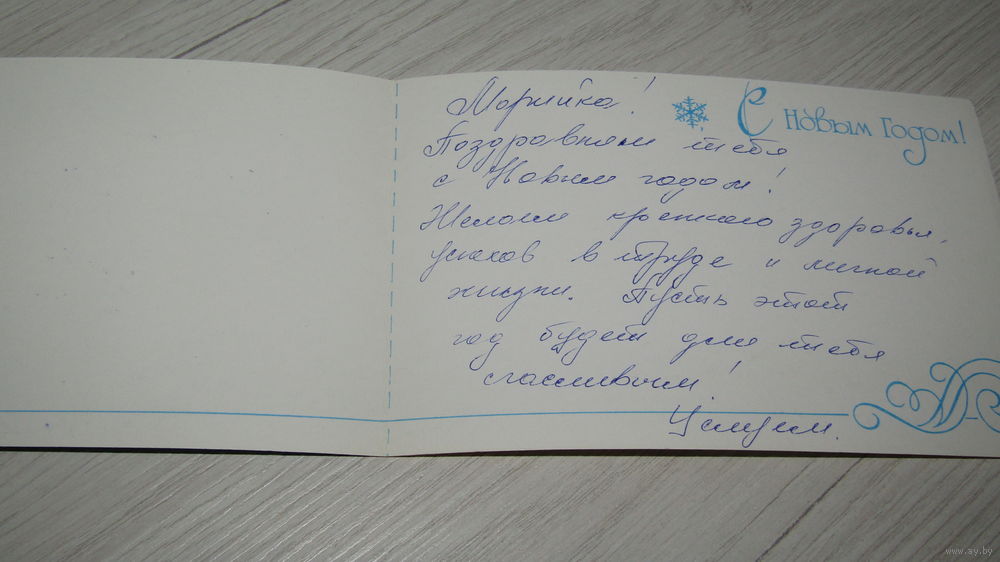 С Новым Годом!
Марийка!
Поздравляем тебя
с Новым годом!
Желаем крепкого здоровья,
успехов в труде и личной
жизни. Пусть этот
год будет для тебя
счастливым!
Целуем.
www.ay.by